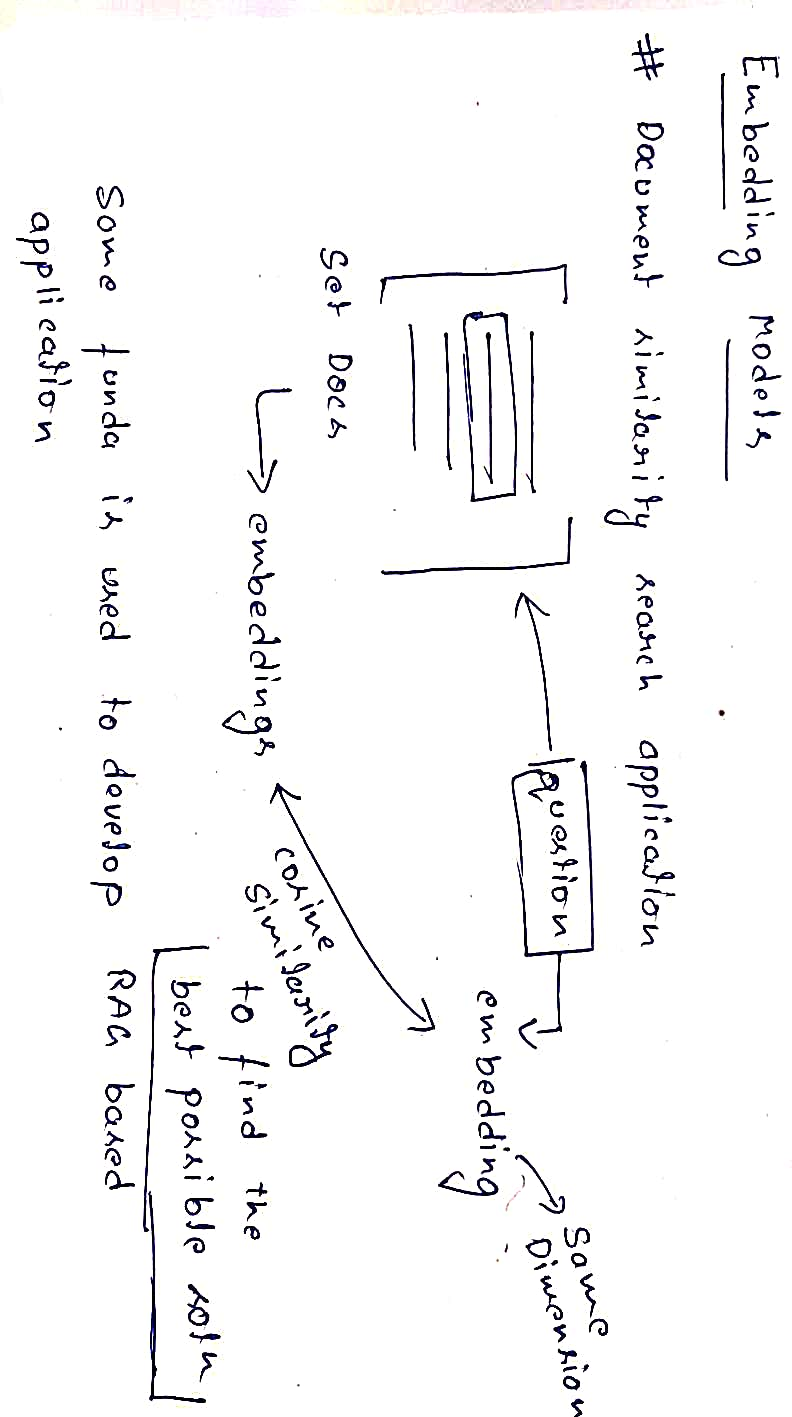 Embedding Models
# Document similarity search application
question
embedding
Same
Dimension
Set Docs
embeddings
cosine
similarity
to find the
best possible soln
Some funda is used to develop RAG based
application